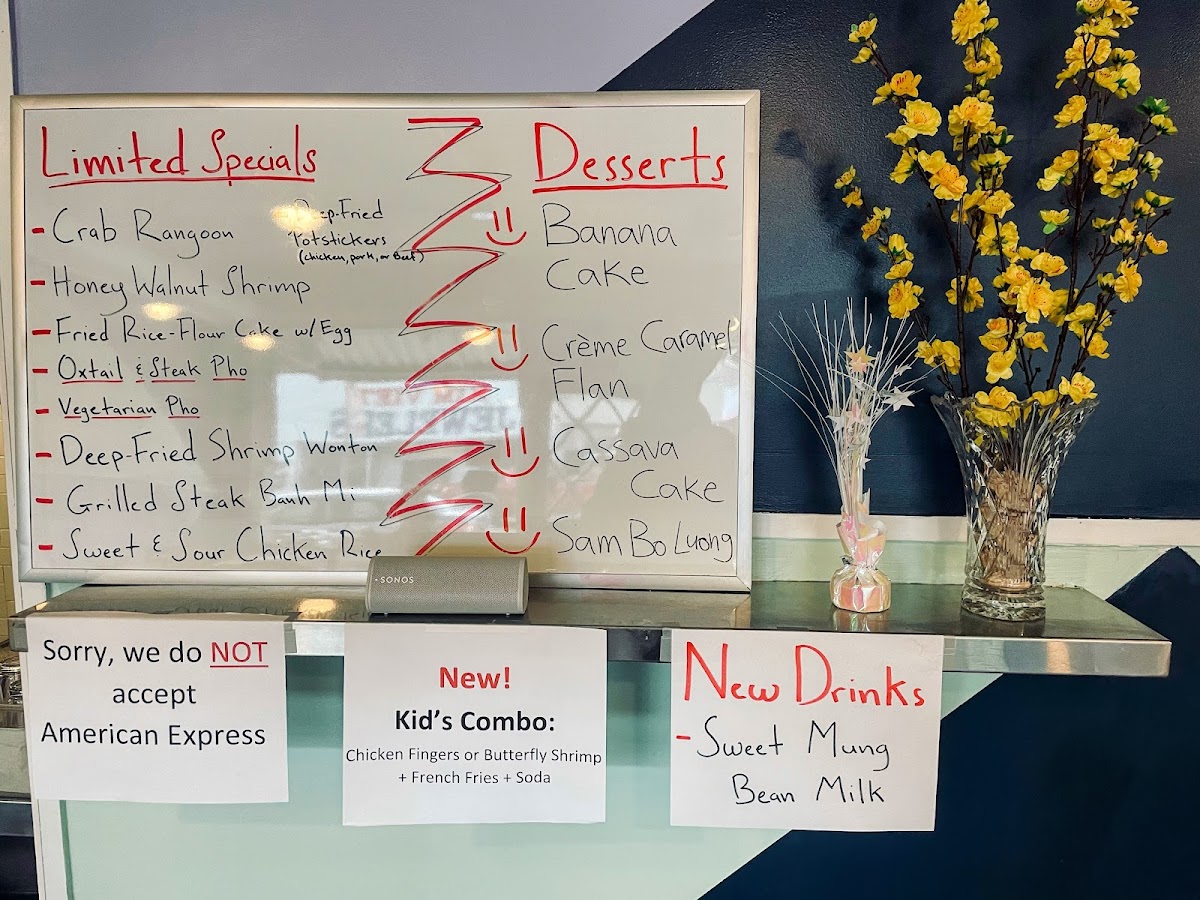 Limited Specials
- Crab Rangoon
Deep-Fried
Potstickers
(chicken, pork, or Beef)
- Honey Walnut Shrimp
- Fried Rice-Flour Cake w/Egg
- Oxtail & Steak Pho
- Vegetarian Pho
- Deep-Fried Shrimp Wonton
- Grilled Steak Banh Mi
- Sweet & Sour Chicken Rice
Desserts
Banana
Cake
Crème Caramel
Flan
Cassava
Cake
Sam Bo Luong
SONOS
Sorry, we do NOT
accept
American Express
New!
Kid's Combo:
Chicken Fingers or Butterfly Shrimp
+ French Fries + Soda
New Drinks
- Sweet Mung
Bean Milk